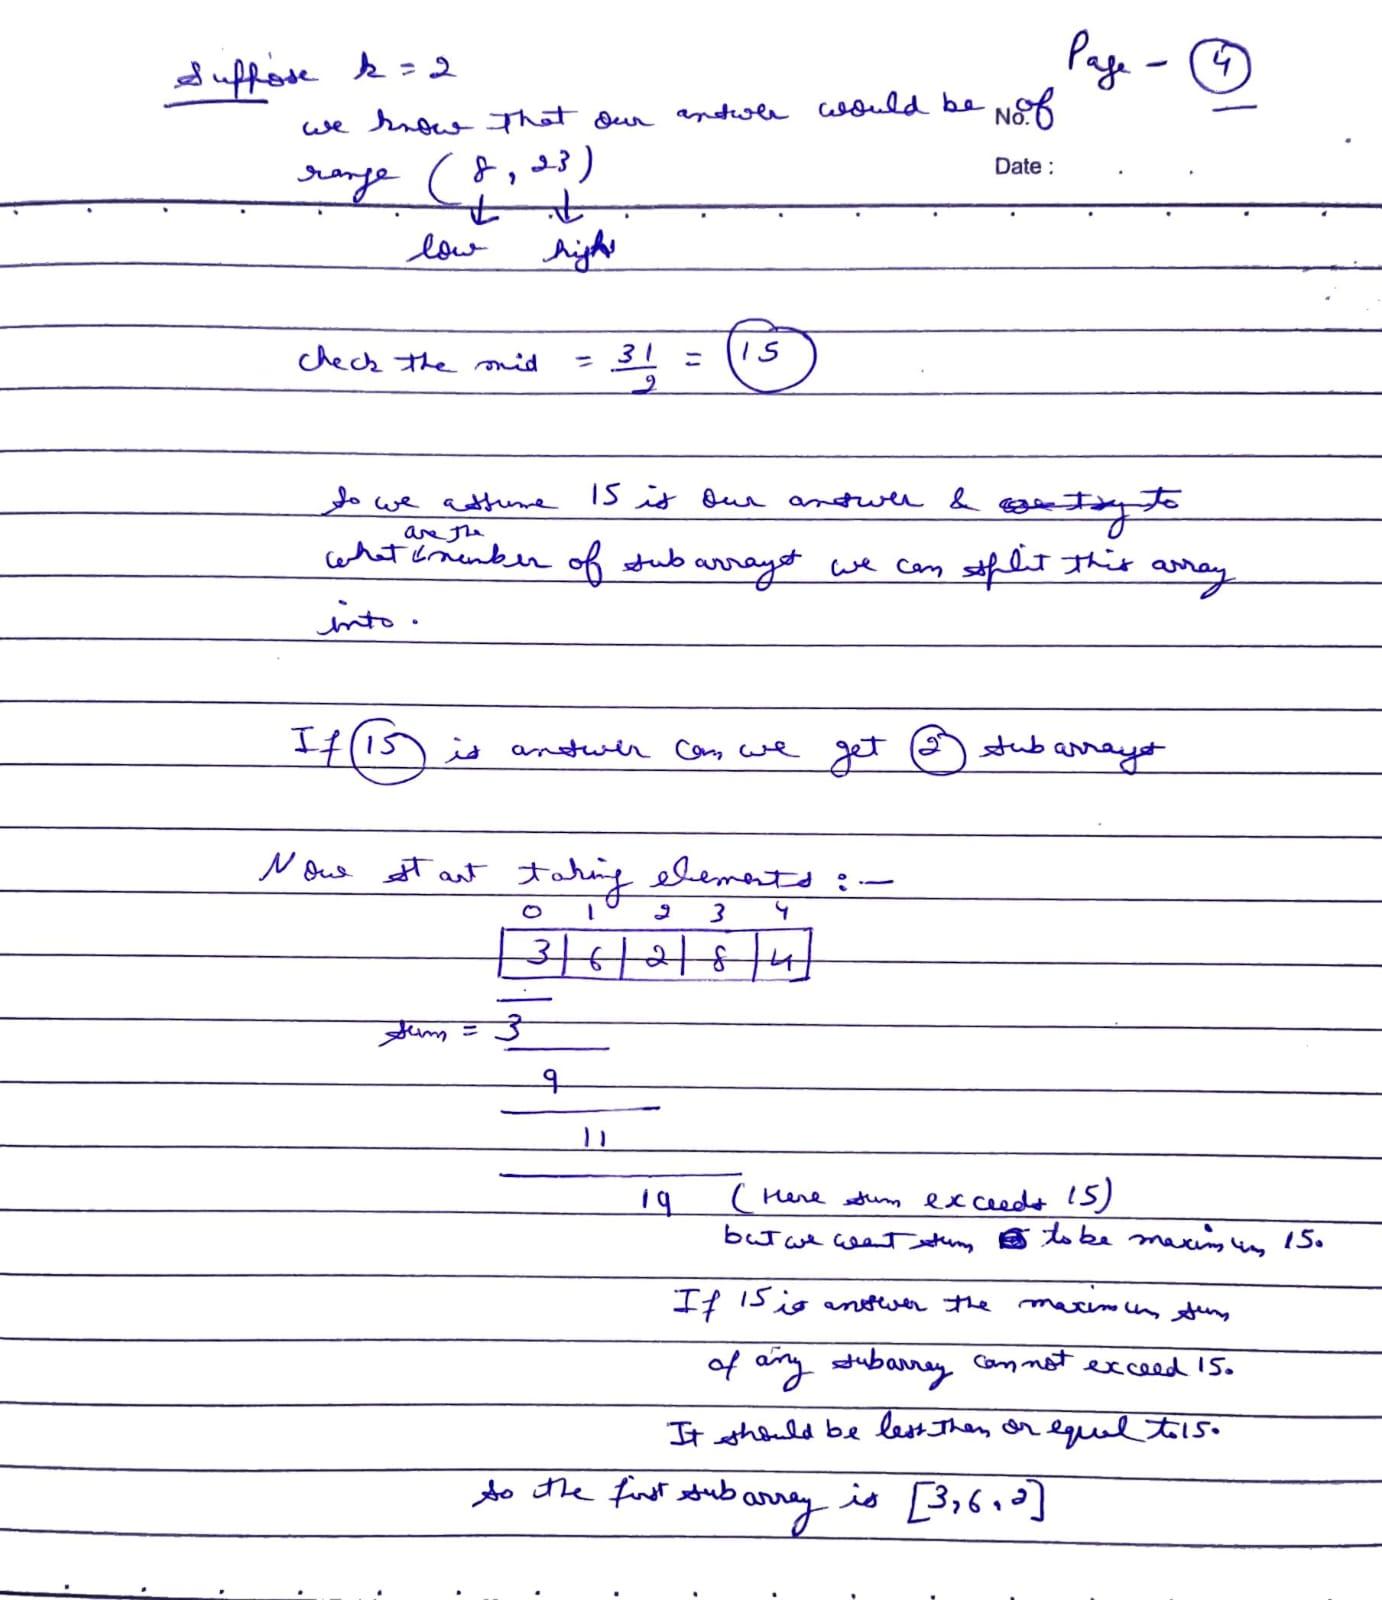 Page - 4
Suppose k = 2
we know that our answer would be of
No.
range ( 8 , 23 )
Date :
low high
check the mid = 31/2 = 15
So we assume 15 is our answer & we try to
are the
what number of subarrays we can split this array
into .
If 15 is answer can we get 2 subarrays
Now start taking elements : —
0 1 2 3 4
3 | 6 | 2 | 8 | 4
sum = 3
9
11
19 ( Here sum exceeds 15 )
but we want sum to be maximum 15.
If 15 is answer the maximum sum
of any subarray cannot exceed 15.
It should be less than or equal to 15.
So the first subarray is [3, 6, 2]